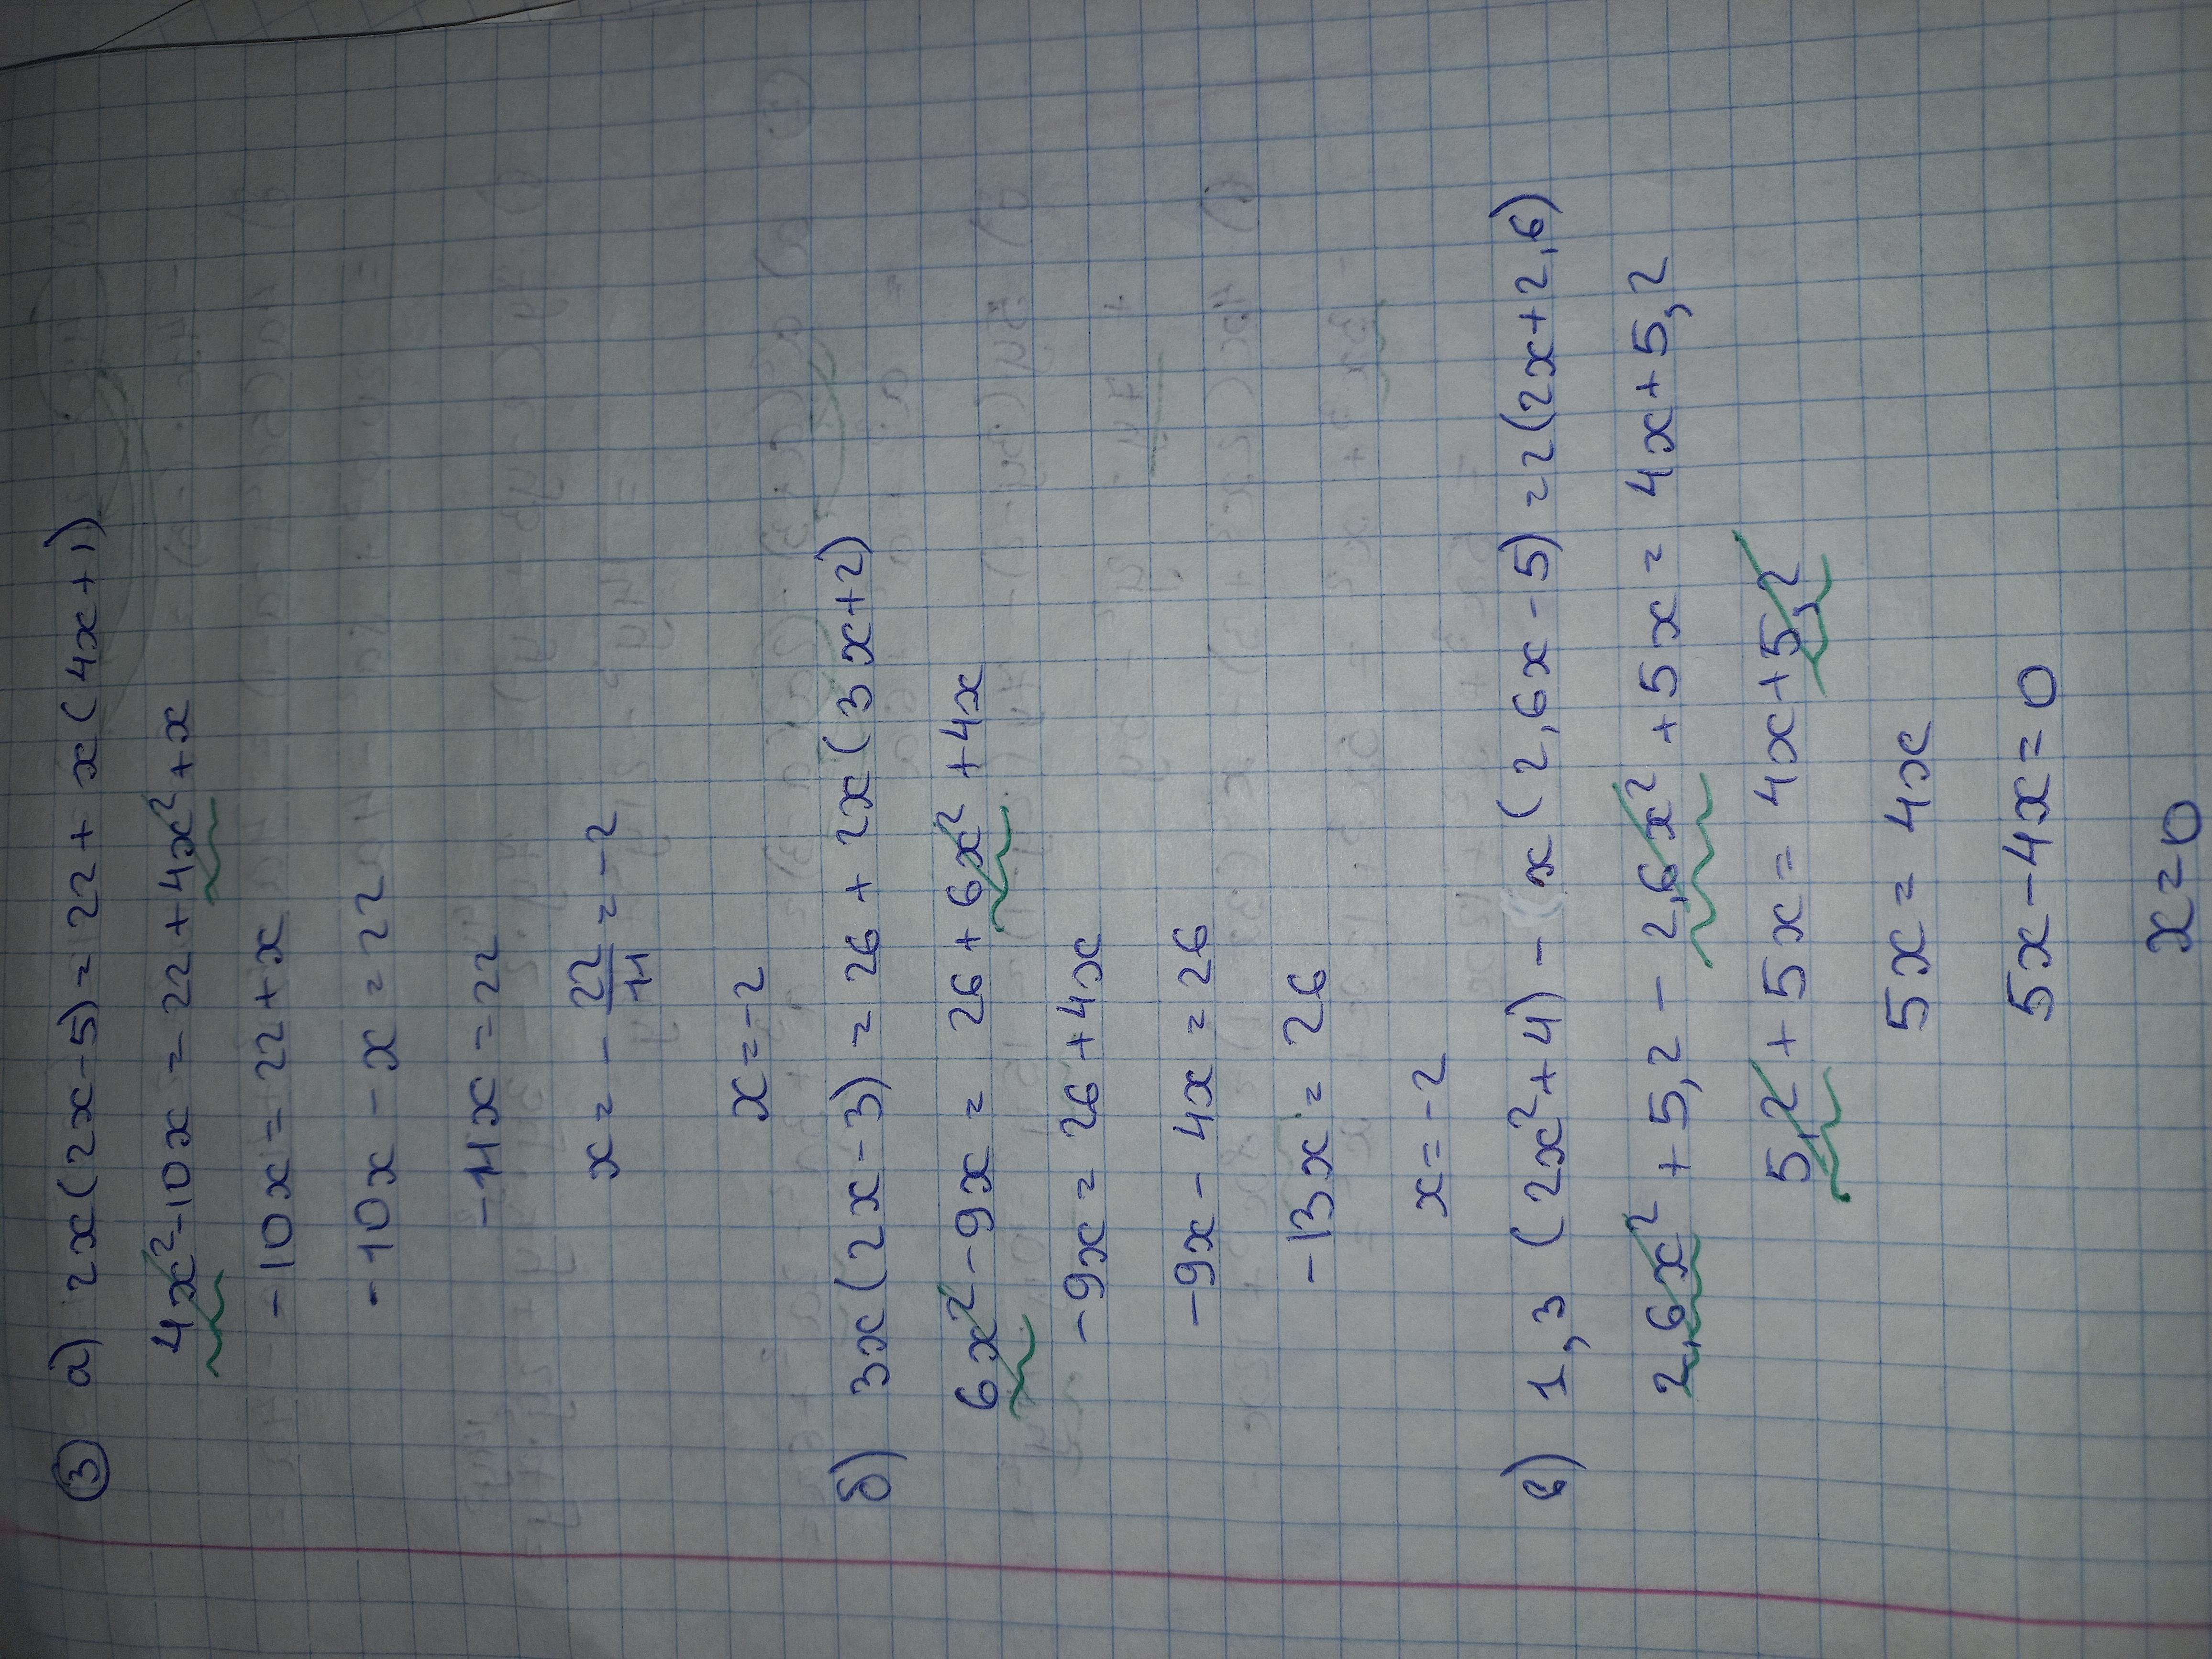 ③ а) 2x(2x-5)=22+x(4x+1)
4x²-10x=22+4x²+x
-10x=22+x
-10x-x=22
-11x=22
x=-22/11=-2
x=-2
б) 3x(2x-3)=26+2x(3x+2)
6x²-9x=26+6x²+4x
-9x=26+4x
-9x-4x=26
-13x=26
x=-2
в) 1,3(2x²+4)-x(2,6x-5)=22(2x+2,6)
2,6x²+5,2-2,6x²+5x=4x+5,2
5,2+5x=4x+5,2
5x=4x
5x-4x=0
x=0